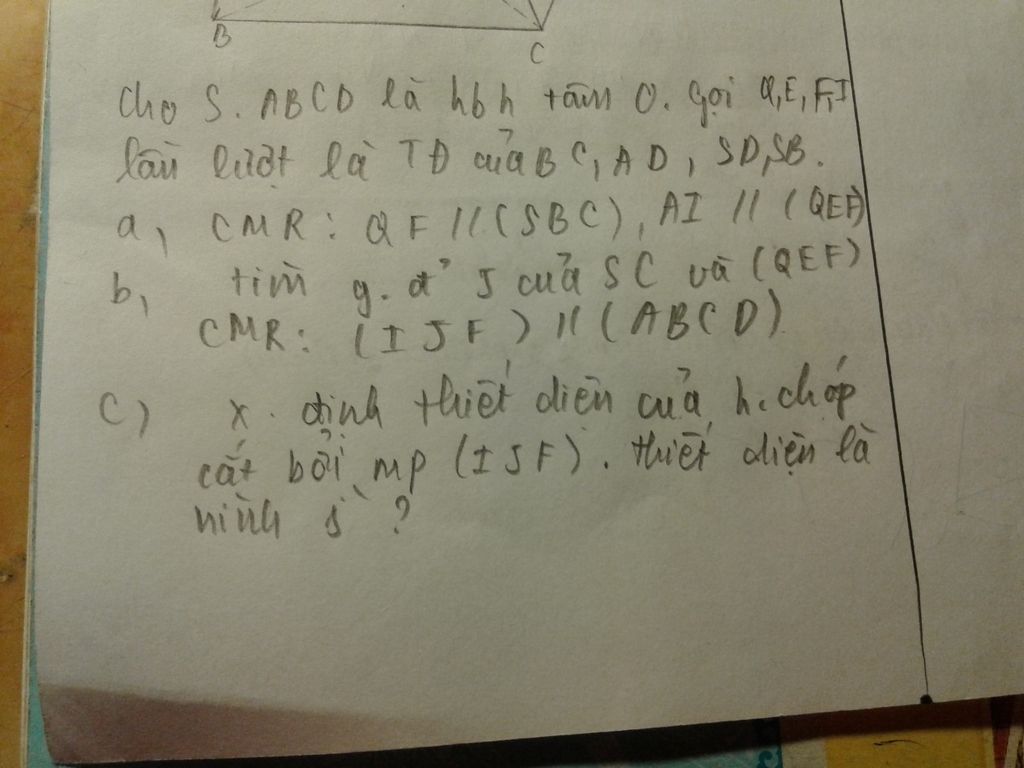 B
C
Cho S. ABCD là hbh tâm O. Gọi Q,E,F,I
lần lượt là TĐ của BC, AD, SD,SB.
a, CMR: QF // (SBC), AI // (QEF)
b, tìm g. đ' J của SC và (QEF)
CMR: (IJF) // (ABCD)
C) X. định thiết diện của h. chóp
cắt bởi mp (IJF). thiết diện là
hình j` ?